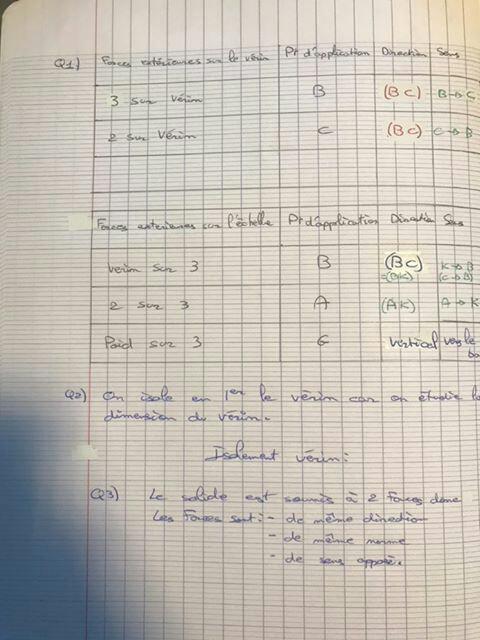 Q1) Forces extérieures sur le vérin Pt d'application Direction Sens
3 sur vérin B (BC) B→C
2 sur Vérin C (BC) C→B
Forces exterieures sur l'échelle Pt d'application Direction Sens
verin sur 3 B (BC) K→B
=(BK) (C→B)
2 sur 3 A (AK) A→K
Poid sur 3 G vertical vers le
ba
Q2) On isole en 1er le vérin car on étudie l
dimension du vérin.
Isolement vérin:
Q3) Le solide est soumis à 2 forces donc
Les forces sont: - de même direction
- de même norme
- de sens opposé.